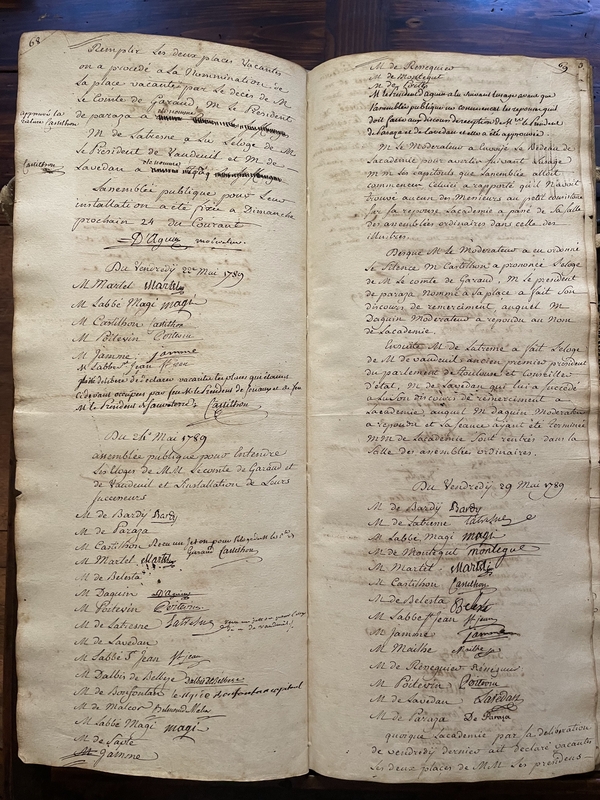 68
Remplir les deux places vacantes
on a procédé a la Nommination de
la place vacante par le decès de M
le Comte de Garaud M le President
de paraza a été nommé
approuvé la
rature Castilhon
M de Latresne a lu leloge de M
le President de Vaudeuil et M de
Lavedan a été nommé
Castilhon
Lassemblée publique pour leur
installation a été fixée a Dimanche
prochain 24 du Courant
D'Aguin moderateur
Du Vendredy 22 Mai 1789
M Martel Martel
M Labbé Magi magi
M Castilhon Castilhon
M Poitevin Poitevin
M Jamme Jamme
M Labbé St Jean St Jean
M le President de Sauveterre Castilhon
Du 24 Mai 1789
assemblée publique pour Entendre
les Eloges de M.M. Le comte de Garaud et
de Vaudeuil et L'installation de Leurs
successeurs
M de Bardy Bardy
M de Paraza
M Castilhon Castilhon
M Martel Martel
M de Belesta
M Daguin D'Aguin
M Poitevin Poitevin
M de Latresne Latresne
M de Lavedan
M Labbé St Jean St Jean
M Dalbis de Belbeze
M de Bonfontan
M de Malcor
M Labbé Magi magi
M de Sapte
M Jamme
69
M de Reneguier
M de Montegut
M le President daguin a lu suivant lusage avant que
l'assemblée publique ne commencat les reponses quil
doit faire aux discours de reception de Mrs le President
de Paraza et de Lavedan et elles a été approuvées
M Le Moderateur a Envoyé Le Bedeau de
Lacademie pour avertir suivant lusage
MM les capitouls que Lassemblée alloit
commencer celuici a rapporté qu'il N'avoit
Trouvé aucun des Messieurs au petit consistoire
Sur sa reponse Lacademie a passé de la Salle
des assemblées ordinaires dans celle des
illustres.
Lorsque M le Moderateur a eu ordonné
le Silence M Castilhon a prononcé l'eloge
de M le comte de Garaud, M le president
de paraza nommé a sa place a fait son
discours de remerciment, auquel M
daguin Moderateur a repondu au nom
de Lacademie.
Ensuite M de Latresne a fait l'eloge
de M de vaudeuil ancien premier president
du parlement de Toulouse et conseiller
d'état, M de Lavedan qui lui a succedé
a lu son discours de remerciment a
Lacademie auquel M daguin Moderateur
a repondu et la seance ayant été terminée
MM de Lacademie sont rentrés dans la
Salle des assemblées ordinaires.
Du Vendredy 29 Mai 1789
M de Bardy Bardy
M de Latresne Latresne
M Labbé Magi magi
M de Montegut montegut
M Martel Martel
M Castilhon Castilhon
M de Belesta Belesta
M Labbé St Jean St Jean
M Jamme Jamme
M Mailhe Mailhe
M de Reneguier Reneguier
M Poitevin Poitevin
M de Lavedan Lavedan
M de Paraza De Paraza
quoique Lacademie par sa deliberation
de vendredy dernier ait declaré vacantes
les deux places de M.M. Les presidens